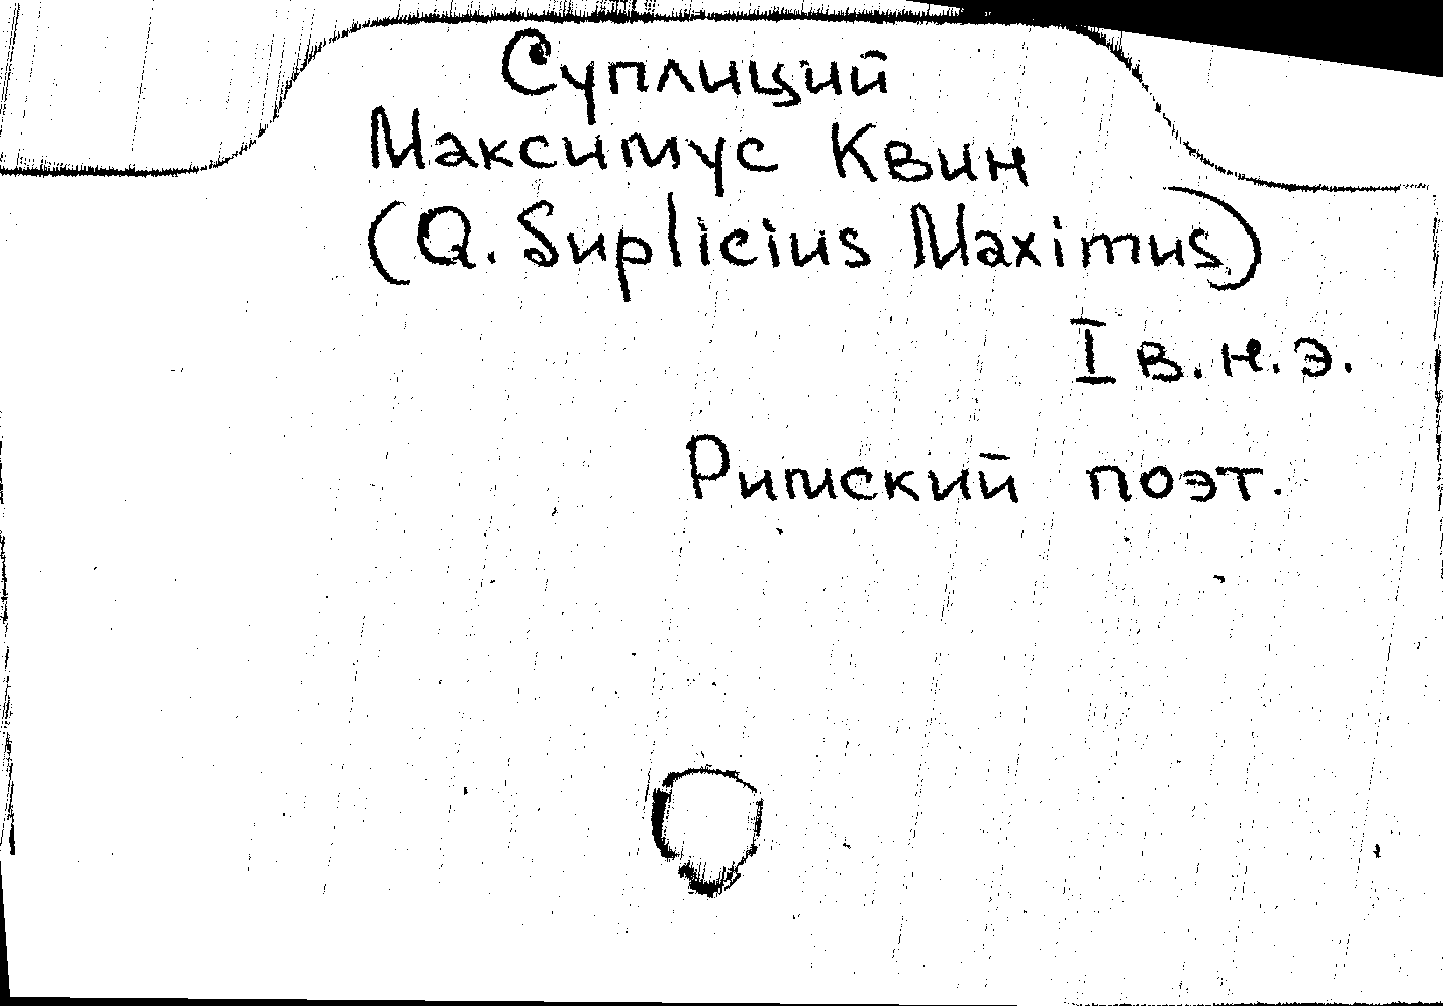 Суплиций
Максимус Квин
(Q. Suplicius Maximus)
I в. н. э.
Римский поэт.